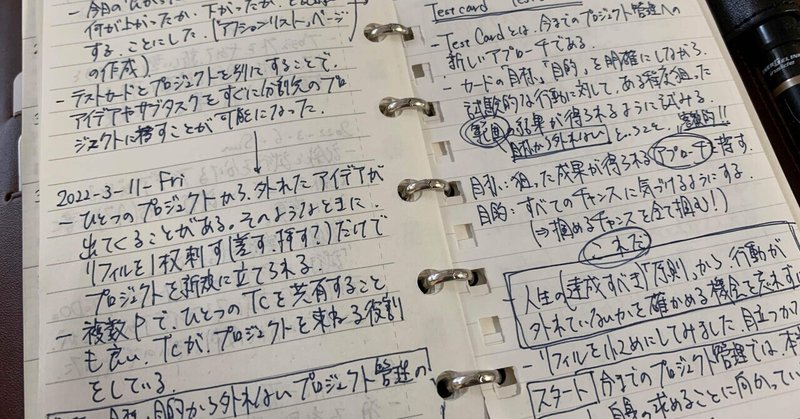 何が上がったか、下がったか、
することにした。(「アクションリスト」ページ
の作成)
- テストカードとプロジェクトを別にすることで、
アイデアやサブタスクをすぐに分割先のプロ
ジェクトに挿すことが可能になった。
2022-3-11-Fri
- ひとつのプロジェクトから、外れたアイデアが
出てくることがある。そのようなときに
リフィルを1枚刺す(差す、挿す?)だけで
プロジェクトを新規に立てられる。
- 複数Pで、ひとつのTCを共有すること
も良い。TCが、プロジェクトを束ねる役割
をしている。
目的から外れないプロジェクト管理の
Test card
- Test Cardとは、今までのプロジェクト管理への
新しいアプローチである。
- カードの目標、「目的」を明確にしながら、
試験的な行動に対して、ある程度狙った
範囲の結果が得られるように試みる。
目的から外れない ということを、意識的!!
目標:狙った成果が得られるアプローチを指す。
目的:すべてのチャンスに気づけるようにする。
(⇒掴めるチャンスを全て掴む!)
これだ
- 人生の(達成すべき)「原則」から行動が
外れていないかを確かめる機会を忘れず
- リフィルを1にまとめにしてみました。目立つか?
スタート 今までのプロジェクト管理では、本
自身の求めることに向かってい